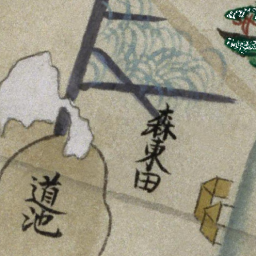 森東田
道池